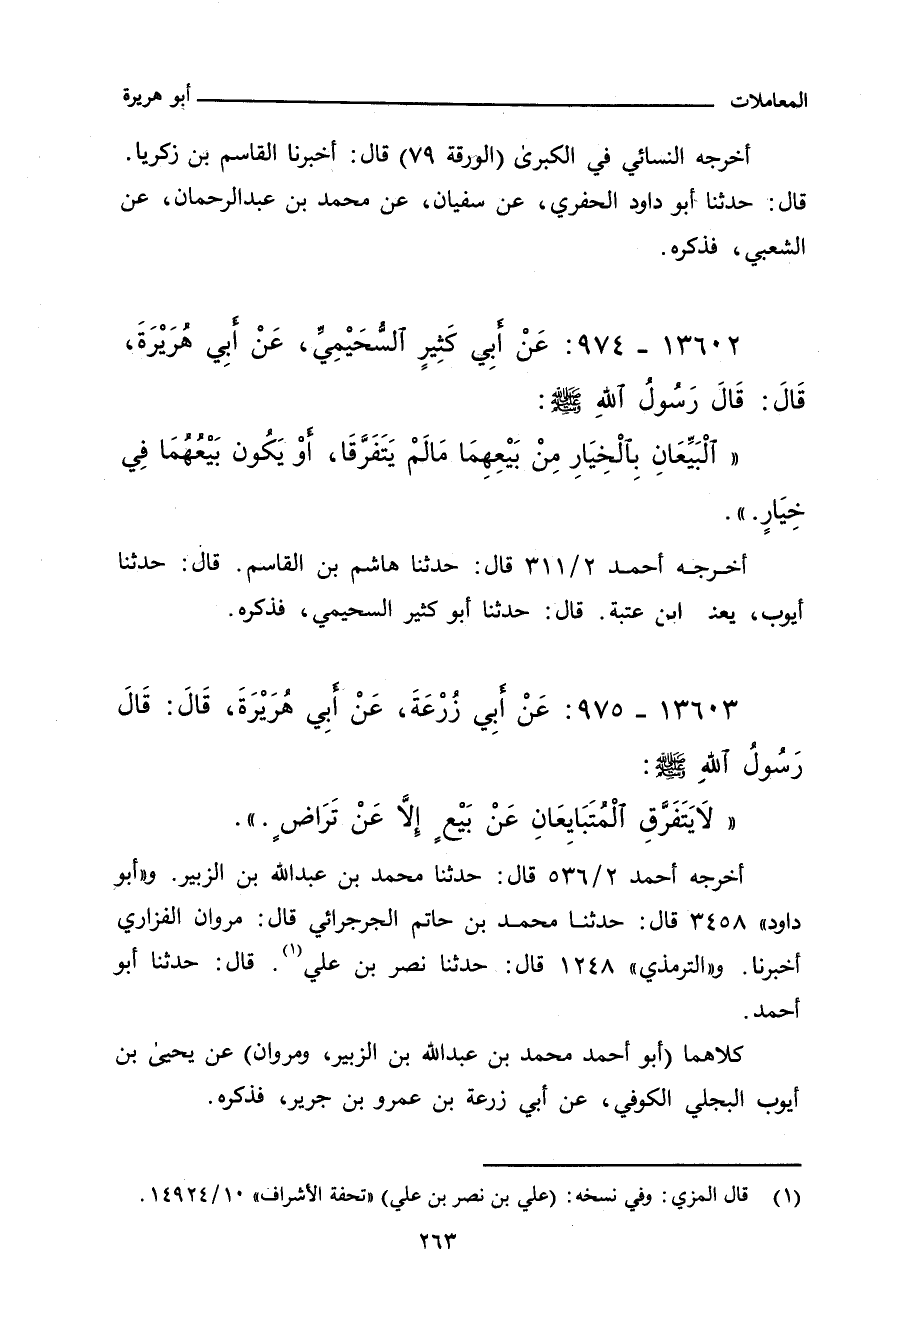 المعاملات ــــــــــــــــ أبو هريرة
أخرجه النسائي في الكبرىٰ (الورقة ٧٩) قال: أخبرنا القاسم بن زكريا.
قال: حدثنا أبو داود الحفري، عن سفيان، عن محمد بن عبدالرحمان، عن
الشعبي، فذكره.
١٣٦٠٢ ـ ٩٧٤: عَنْ أَبِي كَثِيرٍ ٱلسُّحَيْمِيِّ، عَنْ أَبِي هُرَيْرَةَ،
قَالَ: قَالَ رَسُولُ ٱللهِ ﷺ:
« ٱلْبَيِّعَانِ بِٱلْخِيَارِ مِنْ بَيْعِهِمَا مَالَمْ يَتَفَرَّقَا، أَوْ يَكُون بَيْعُهُمَا فِي
خِيَارٍ.».
أخـرجـه أحمـد ٣١١/٢ قال: حدثنا هاشم بن القاسم. قال: حدثنا
أيوب، يعنـ ابن عتبة. قال: حدثنا أبو كثير السحيمي، فذكره.
١٣٦٠٣ ـ ٩٧٥: عَنْ أَبِي زُرْعَةَ، عَنْ أَبِي هُرَيْرَةَ، قَالَ: قَالَ
رَسُولُ ٱللهِ ﷺ:
« لَايَتَفَرَّقِ ٱلْمُتَبَايِعَانِ عَنْ بَيْعٍ إِلَّا عَنْ تَرَاضٍ.».
أخرجه أحمد ٥٣٦/٢ قال: حدثنا محمد بن عبدالله بن الزبير. و«أبو
داود» ٣٤٥٨ قال: حدثنـا محمـد بن حاتم الجرجرائي قال: مروان الفزاري
أخبرنا. و«الترمذي» ١٢٤٨ قال: حدثنا نصر بن علي(١). قال: حدثنا أبو
أحمد.
كلاهما (أبو أحمد محمد بن عبدالله بن الزبير، ومروان) عن يحيىٰ بن
أيوب البجلي الكوفي، عن أبي زرعة بن عمرو بن جرير، فذكره.
(١) قال المزي: وفي نسخه: (علي بن نصر بن علي) «تحفة الأشراف» ١٤٩٢٤/١٠.
٢٦٣